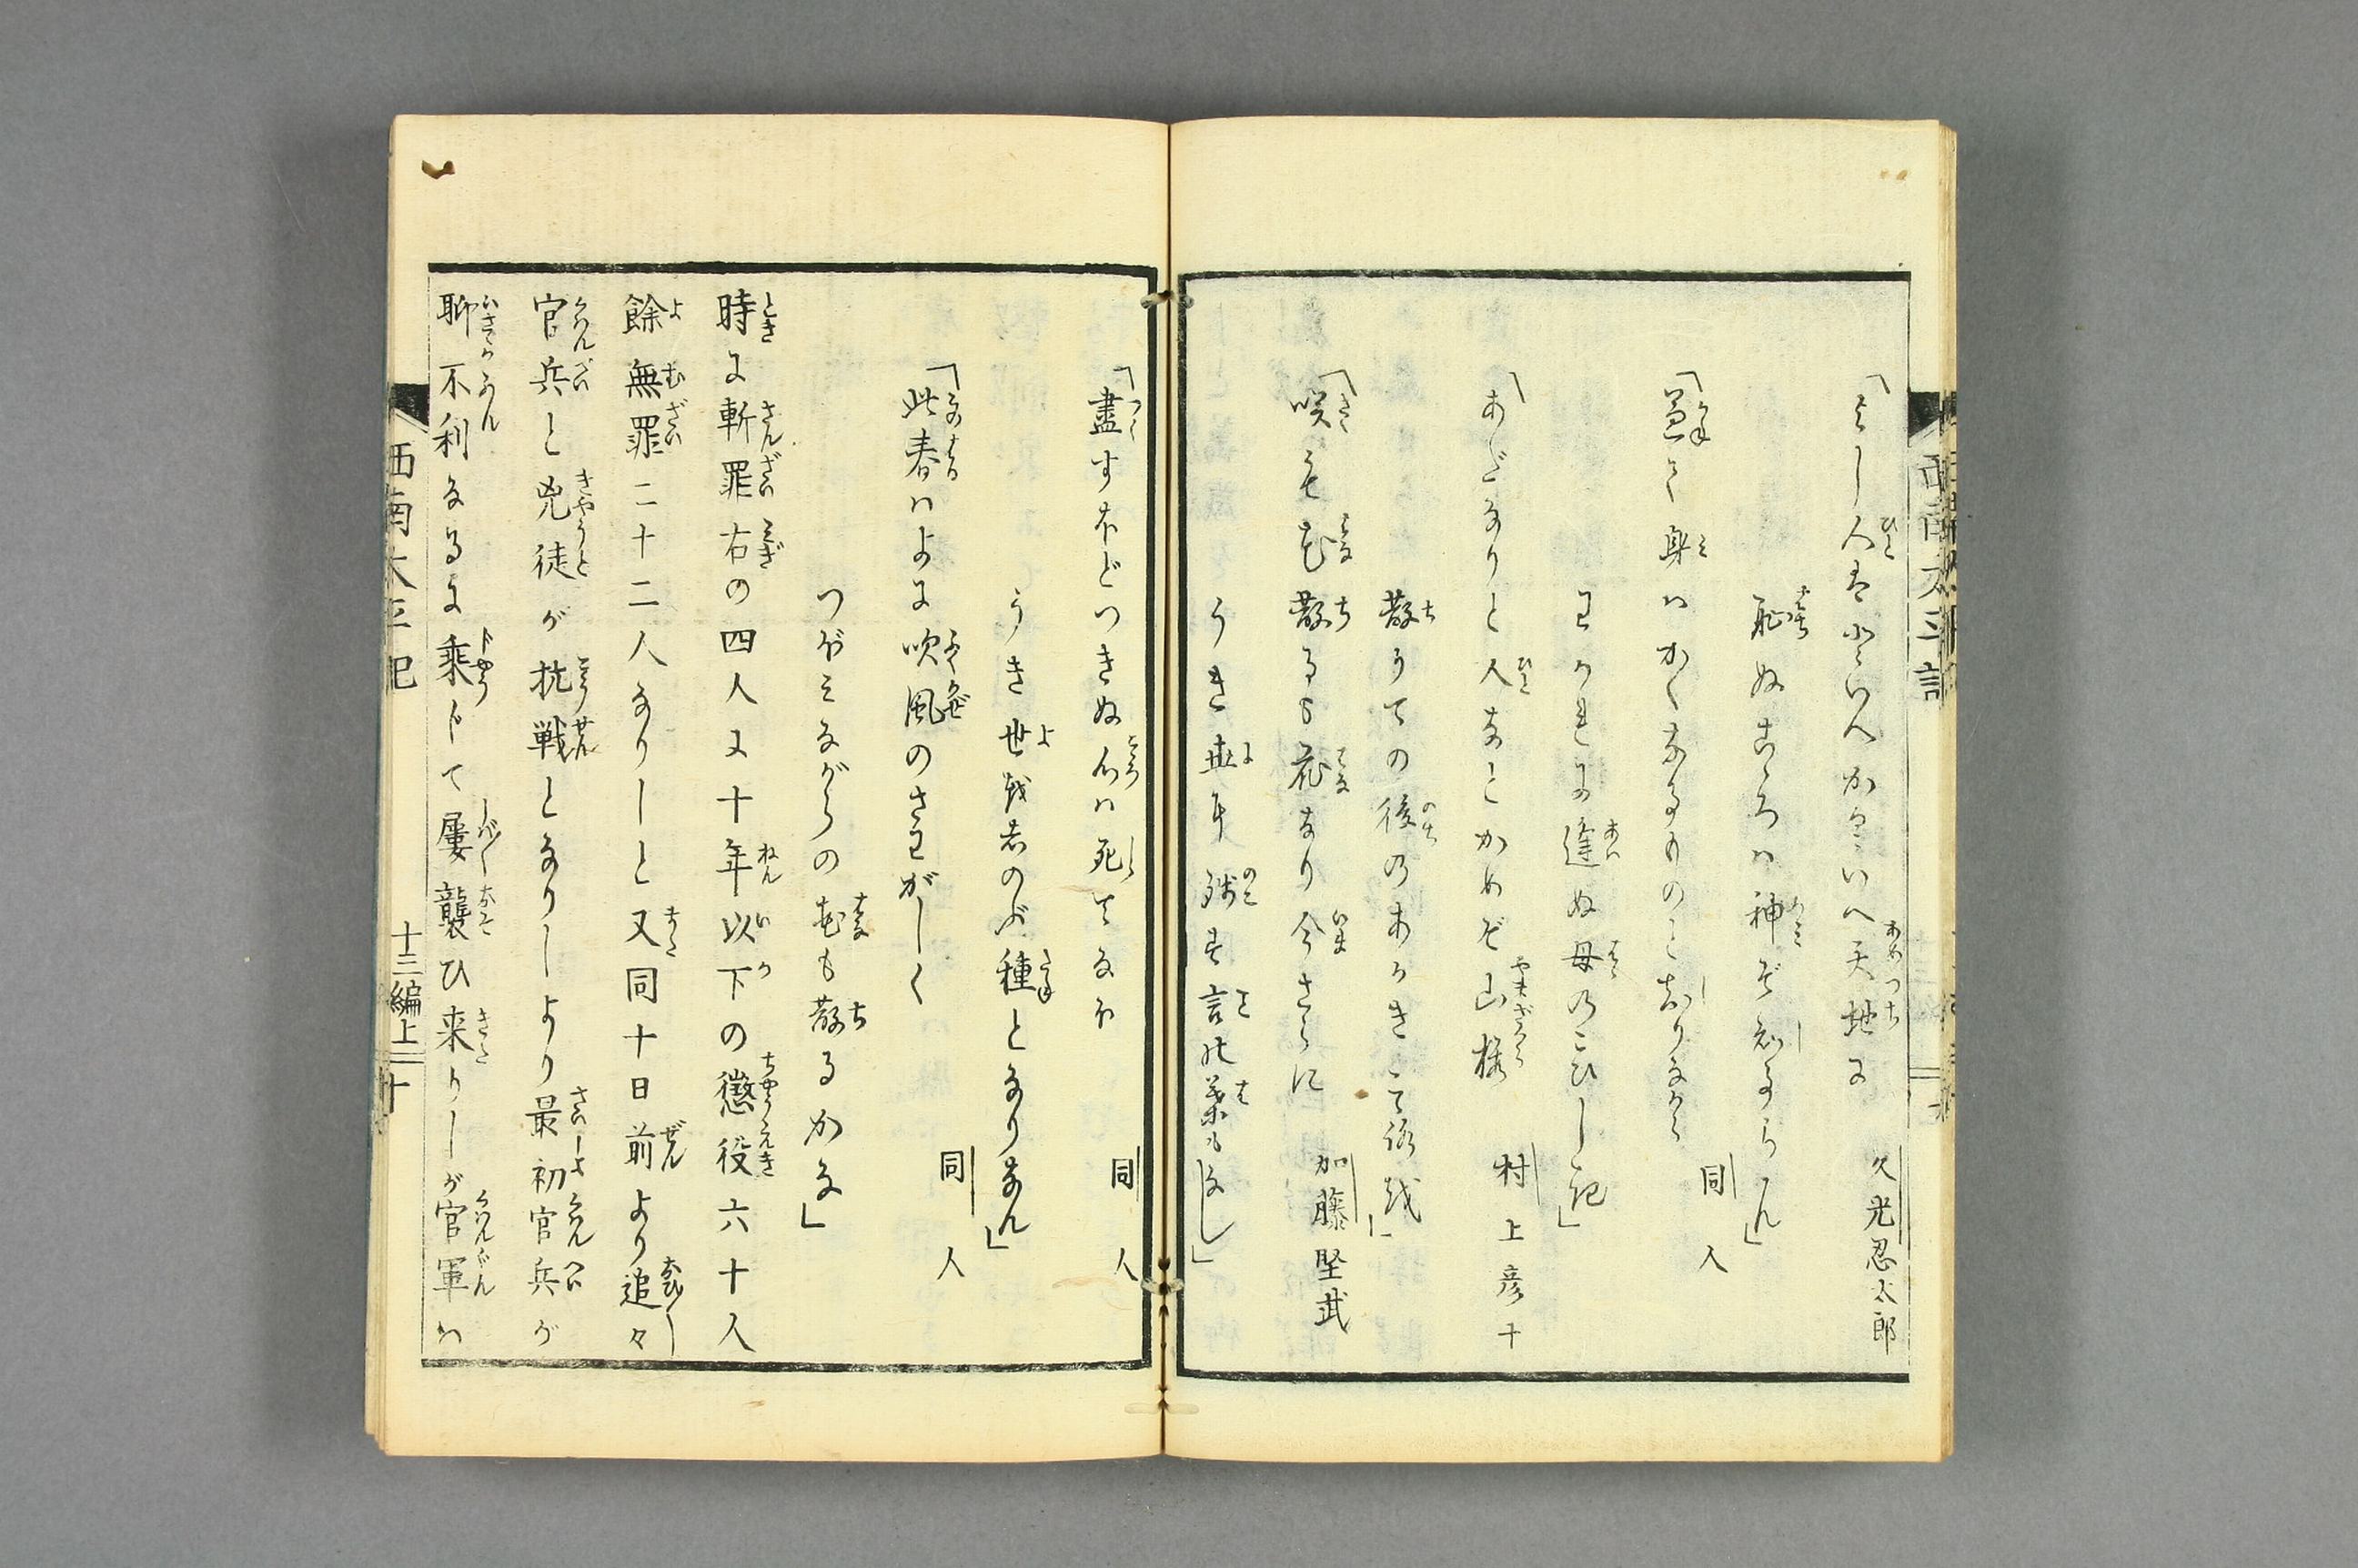 「よし人は非といへかくいへ天地に
久光忍太郎
恥ぬこゝろは神ぞ知るらん」
「兼て身はかくなるものと知りながら
同人
わかれに逢ぬ母のこひし記」
「あだなりと人なとかめぞ山桜
村上彦十
散りての後のあかきこゝ路越」
「咲も花散るも花なり今さらに
加藤堅武
うき世に残す言の葉もなし」
「盡すほどつきぬ心は死してなほ
同人
うき世越志のぶ種となりなん」
「此春はよに吹風のさわがしく
同人
つぼみながらの花も散るかな」
時に斬罪右の四人に十年以下の懲役六十人
餘無罪二十二人なりしと又同十日前より追々
官兵と兇徒が抗戦となりしより最初官兵が
聊不利なるに乗じて屢襲ひ来りしが官軍は
西南太平記
十三編上
十